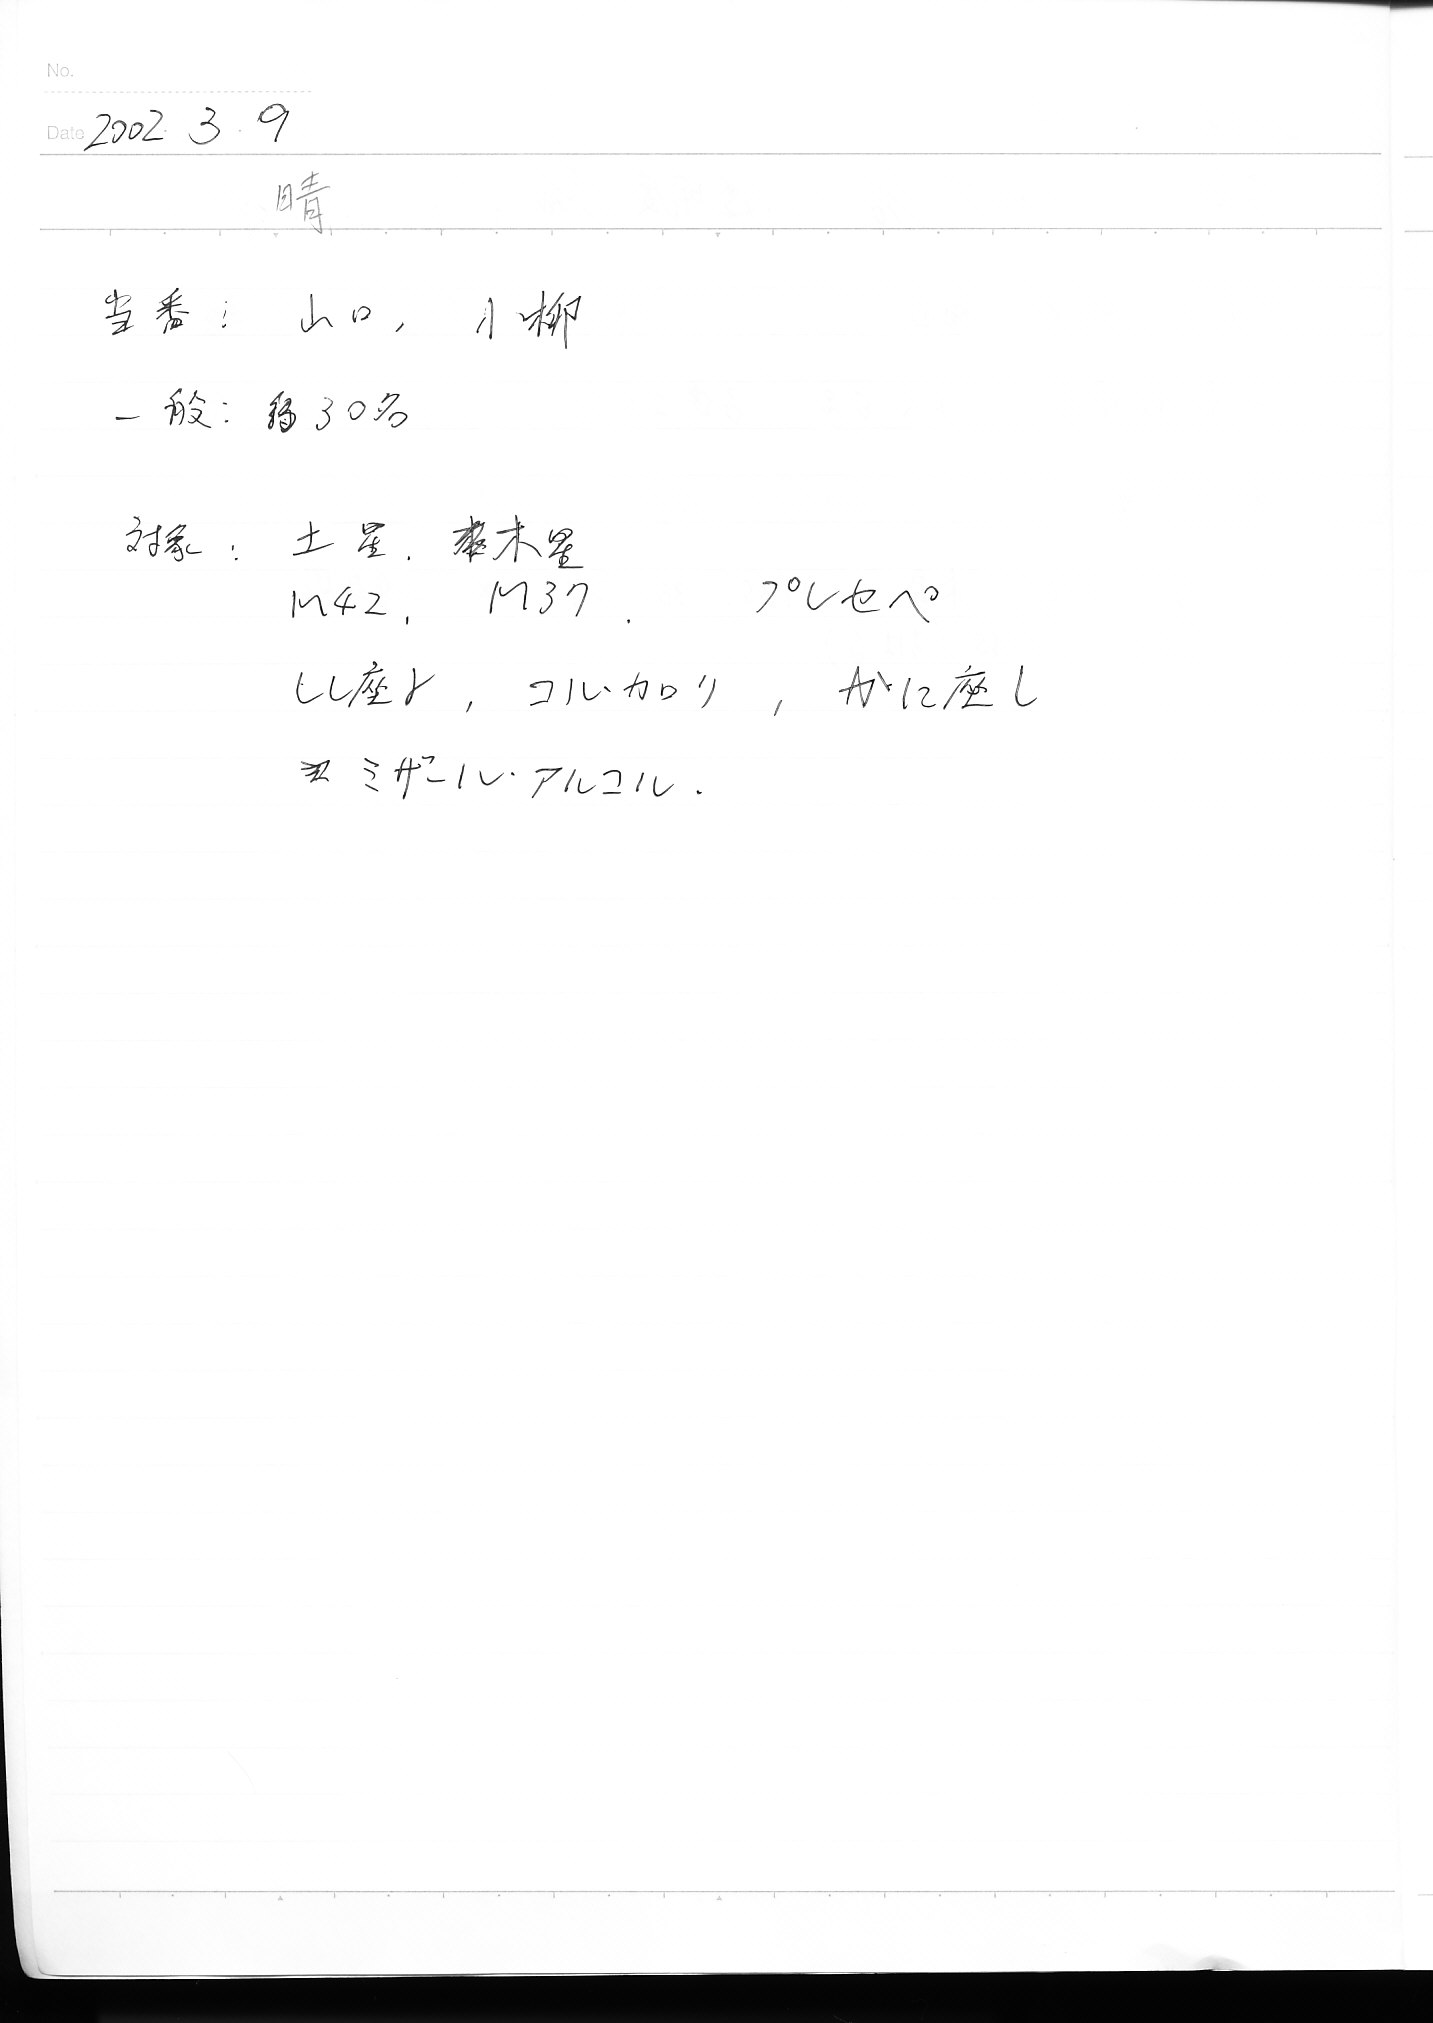 No.
Date 2002・3・9
晴
当番： 山口, 小柳
一般： 30名
対象： 土星. 木星
M42, M37. プレセペ
しし座γ, コル・カロリ, かに座ι
ミザール・アルコル.